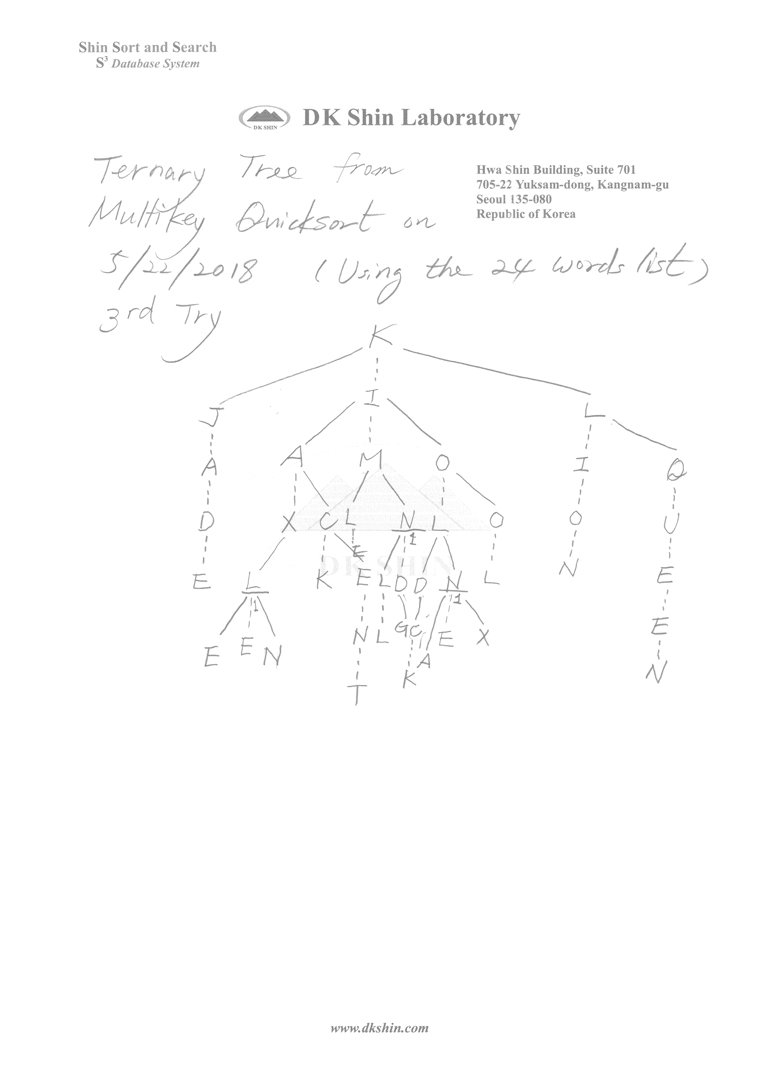 Shin Sort and Search
S³ Database System
DK SHIN
DK Shin Laboratory
Ternary Tree from
Multikey Quicksort on
5/22/2018 (Using the 24 words list)
3rd Try
Hwa Shin Building, Suite 701
705-22 Yuksam-dong, Kangnam-gu
Seoul 135-080
Republic of Korea
K
J I L
A A M O I Q
D X C L N L O O U
1
E
E L K E L D D N L N E
1 1
N L G C E X E
E E N A
K N
T
DK SHIN
www.dkshin.com